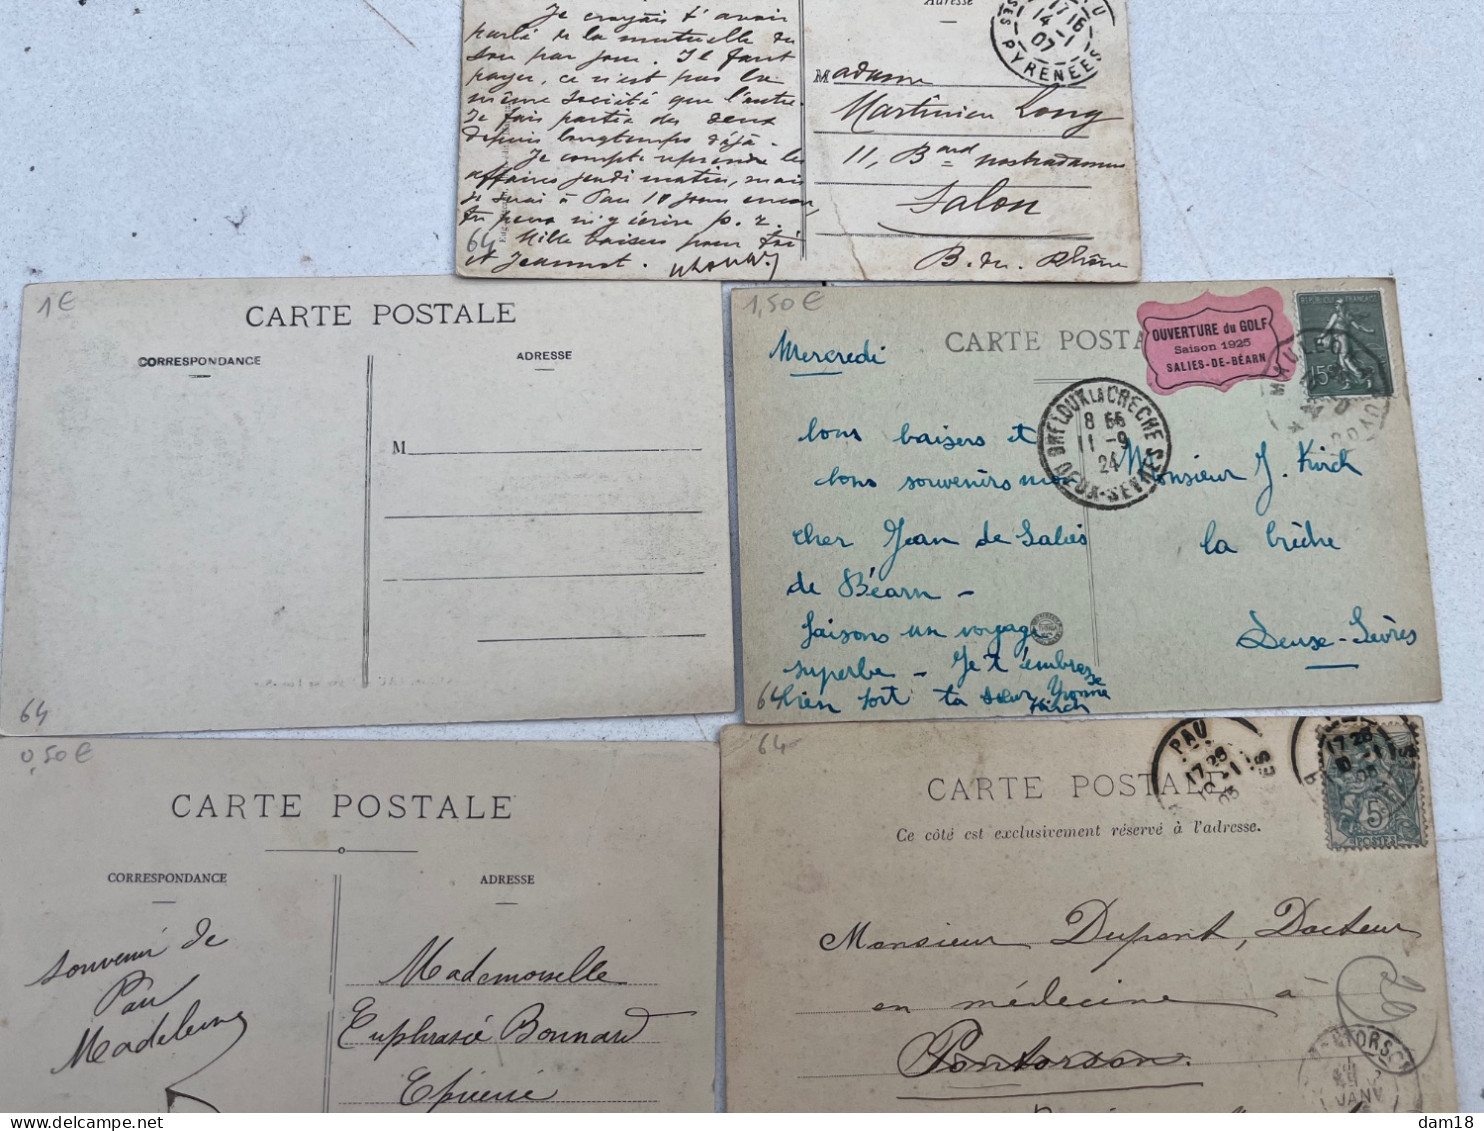 Je croyais t'avoir
parlé de la mutuelle du
sou par jour. Il faut
payer, ce n'est pas la
même société que l'autre.
Je fais partie des deux
depuis longtemps déjà.
Je compte reprendre les
affaires jeudi matin, mais
je serai à Pau 10 jours encore,
tu peux m'y écrire p. r.
Mille baisers pour toi
et Jeannot.
64
Adresse
17 16
14 -1
07
PYRENEES
Madame
Martinien Long
11, Bard nostradamus
Salon
B. du. Rhône
1€
CARTE POSTALE
CORRESPONDANCE
ADRESSE
M
64
1,50€
CARTE POSTA
OUVERTURE du GOLF
Saison 1925
SALIES-DE-BÉARN
REPUBLIQUE FRANÇAISE
15
Mercredi
bons baisers et
bons souvenirs mon
cher Jean de Salies
de Béarn -
faisons un voyage
superbe - Je t'embrasse
bien fort ta sœur Yvonne
Kirch
64
LA CRECHE
8 55
11 -9
24
DEUX-SEVRES
Monsieur J. Kirch
la Crèche
Deux-Sèvres
0,50€
CARTE POSTALE
CORRESPONDANCE
ADRESSE
souvenir de
Pau
Madeleine
Mademoiselle
Euphrasie Bonnard
Epicerie
64
CARTE POSTALE
Ce côté est exclusivement réservé à l'adresse.
PAU
17 26
5
POSTES
17 26
Monsieur Dupont, Docteur
en médecine à
Pontorson.
PONTORSON
JANV
delcampe.net
dam18